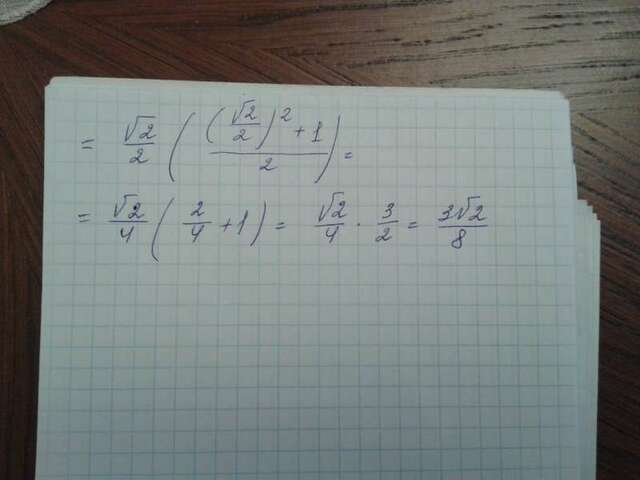 = √2/2 ( ((√2/2)² + 1)/2 ) =
= √2/4 ( 2/4 + 1 ) = √2/4 · 3/2 = 3√2/8